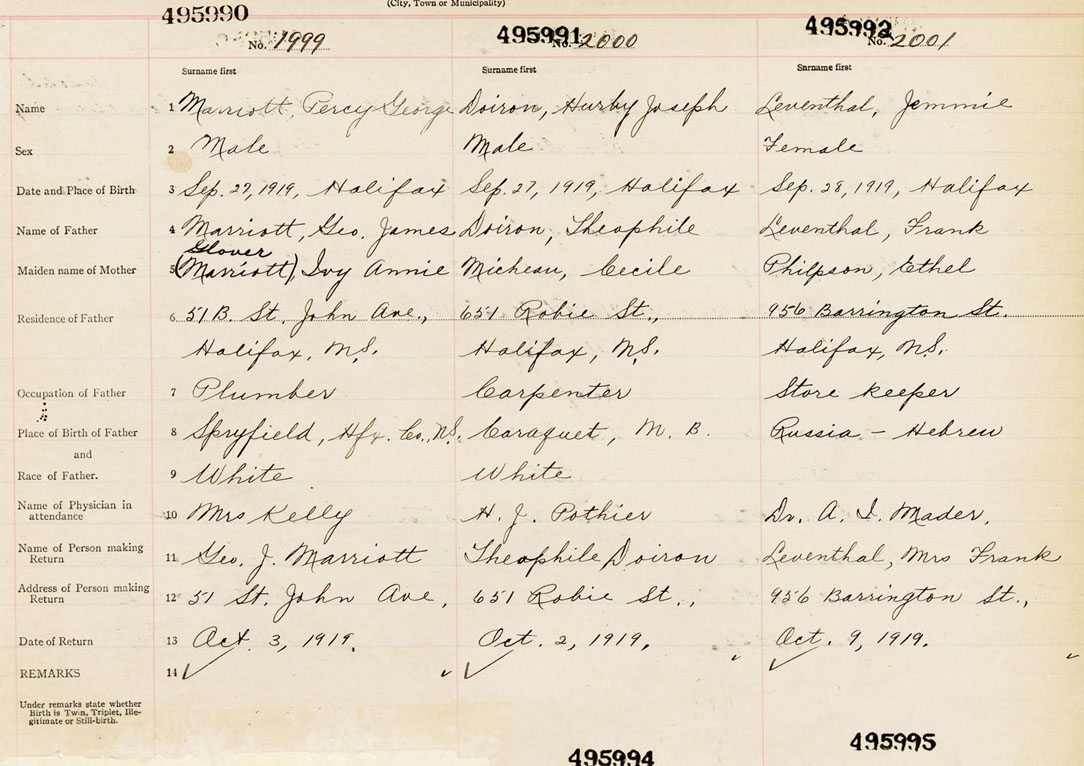 (City, Town or Municipality)
495990 495991 495992
No. 1999 No. 2000 No. 2001
Surname first Surname first Surname first
Name 1 Marriott, Percy George Doiron, Hurby Joseph Leventhal, Jemmie
Sex 2 Male Male Female
Date and Place of Birth 3 Sep. 27, 1919, Halifax Sep. 27, 1919, Halifax Sep. 28, 1919, Halifax
Name of Father 4 Marriott, Geo. James Doiron, Theophile Leventhal, Frank
Glover
Maiden name of Mother 5 (Marriott) Ivy Annie Micheau, Cecile Philpson, Ethel
Residence of Father 6 51 B. St. John Ave., 651 Robie St., 956 Barrington St.
Halifax, N.S. Halifax, N.S. Halifax, N.S.
Occupation of Father 7 Plumber Carpenter Store keeper
Place of Birth of Father 8 Spryfield, Hfx. Co., N.S. Caraquet, M. B. Russia - Hebrew
and
Race of Father. 9 White White
Name of Physician in
attendance 10 Mrs Kelly H. J. Pothier Dr. A. I. Mader.
Name of Person making
Return 11 Geo. J. Marriott Theophile Doiron Leventhal, Mrs Frank
Address of Person making
Return 12 51 St. John Ave, 651 Robie St., 956 Barrington St.,
Date of Return 13 Oct. 3, 1919. Oct. 2, 1919. Oct. 9, 1919.
REMARKS 14
Under remarks state whether
Birth is Twin, Triplet, Ille-
gitimate or Still-birth.
495994 495995